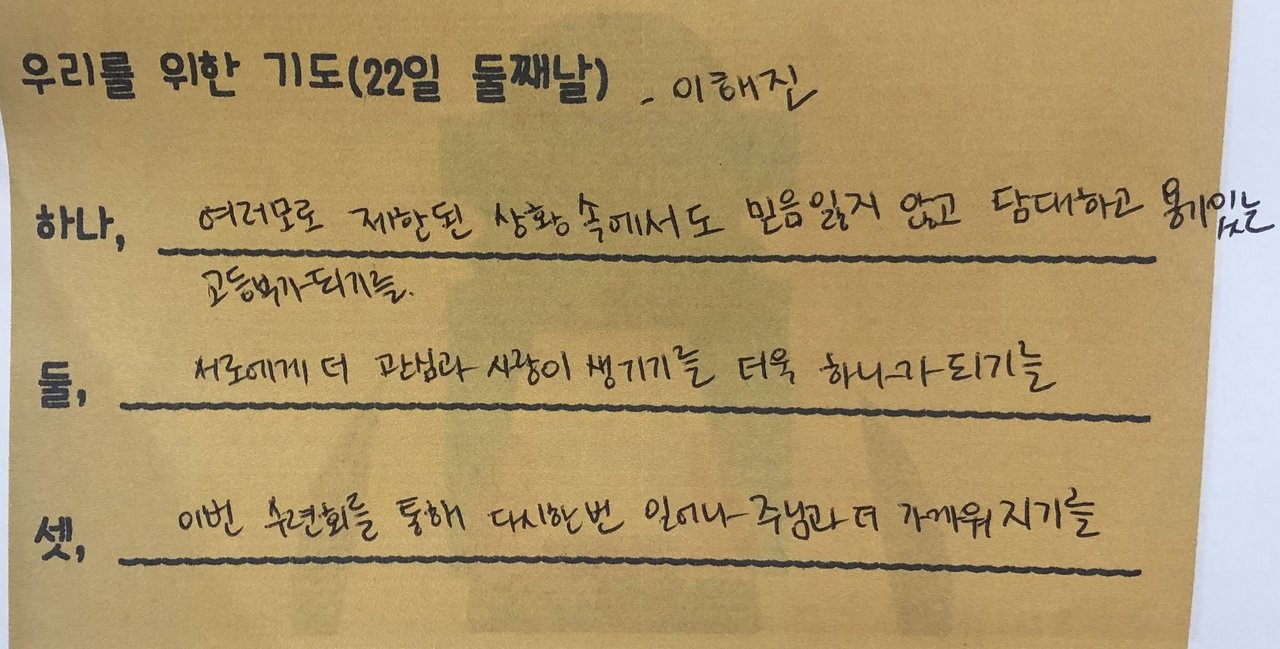 우리를 위한 기도(22일 둘째날) - 이해진
하나, 여러모로 제한된 상황 속에서도 믿음잃지 않고 담대하고 용기있는
고등부가되기를.
둘, 서로에게 더 관심과 사랑이 생기기를 더욱 하나가되기를
셋, 이번 수련회를 통해 다시한번 일어나 주님과 더 가까워지기를